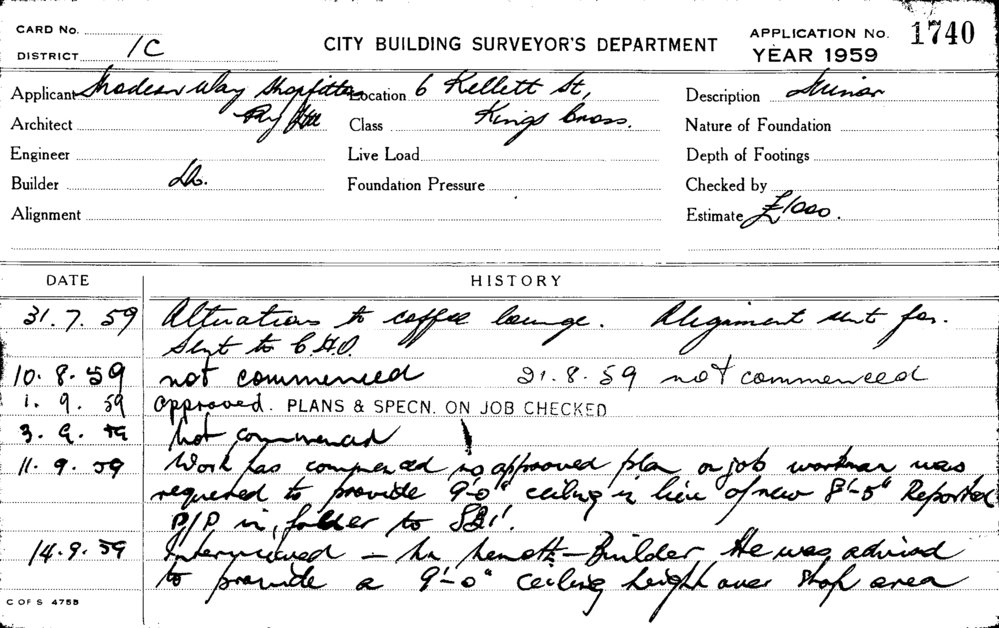 CARD No.
DISTRICT 1C
CITY BUILDING SURVEYOR'S DEPARTMENT
APPLICATION No. 1740
YEAR 1959
Applicant Modern Way Shopfitters
Pty Ltd
Location 6 Kellett St,
Kings Cross.
Description Minor
Architect
Class
Nature of Foundation
Engineer
Live Load
Depth of Footings
Builder Do.
Foundation Pressure
Checked by
Alignment
Estimate £1000.
DATE HISTORY
31.7.59 Alterations to coffee lounge. Alignment sent for.
Sent to C.H.O.
10.8.59 not commenced 21.8.59 not commenced
1.9.59 approved. PLANS & SPECN. ON JOB CHECKED
3.9.59 not commenced
11.9.59 Work has commenced no approved plan on job workman was
requested to provide 9'-0" ceiling in lieu of new 8'-5" Reported
P/P in folder to
14.9.59 Interviewed - Mr - Builder He was advised
to provide a 9'-0" ceiling height over shop area
C OF S 475B